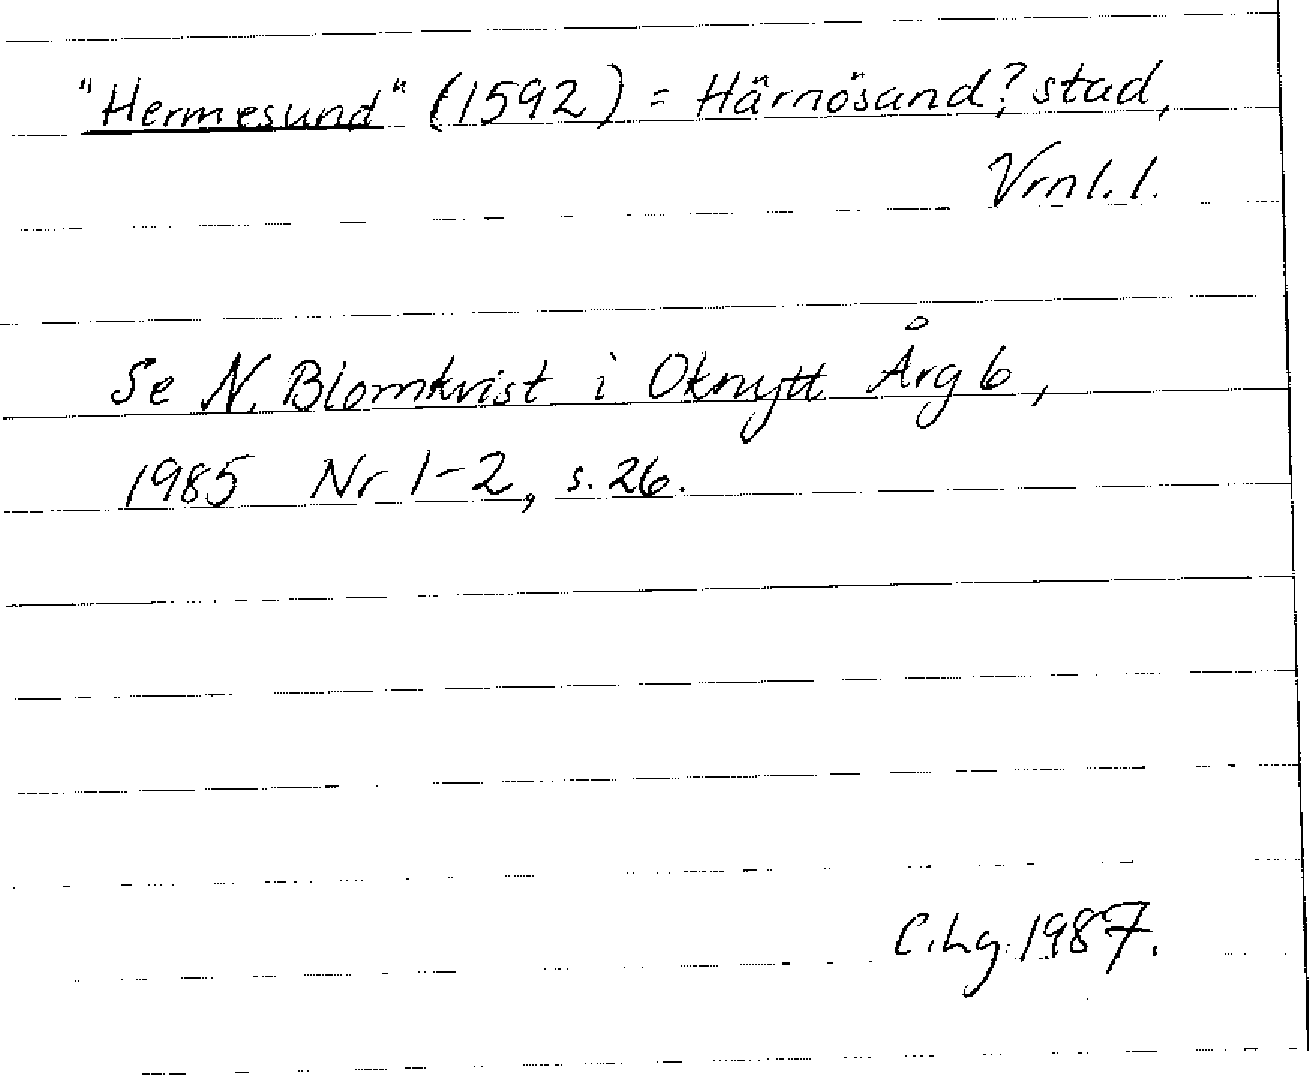 "Hermesund" (1592) = Härnösand? stad,
Vrnl. l.
Se N. Blomkvist i Oknytt Årg 6,
1985 Nr 1-2, s. 26.
C.Lg. 1987.